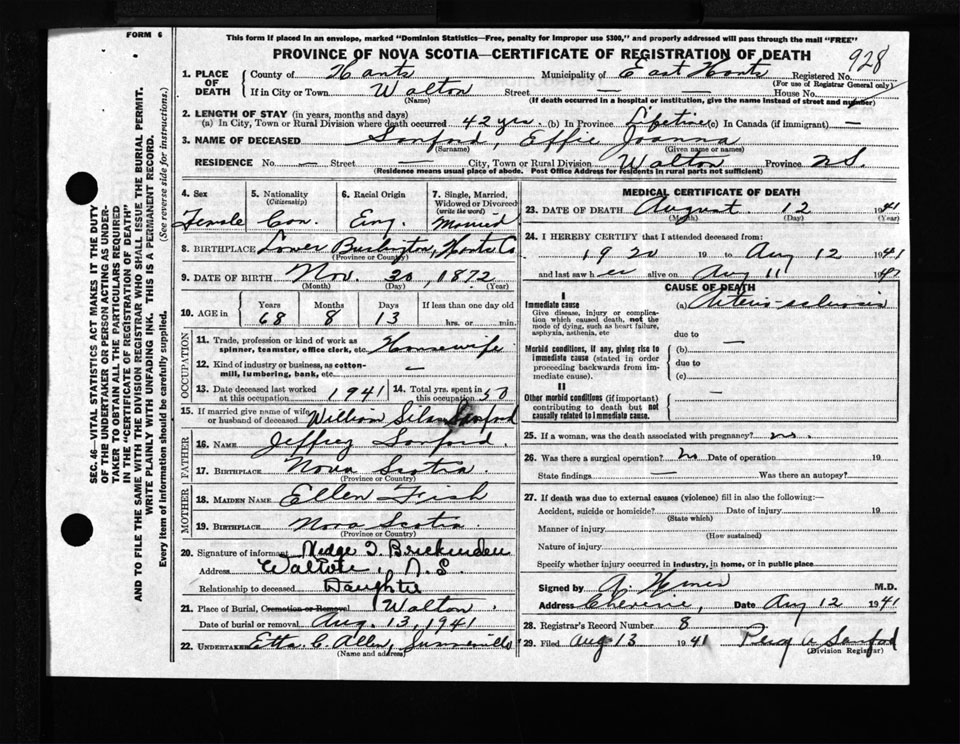 FORM 6
This form if placed in an envelope, marked "Dominion Statistics—Free, penalty for improper use $300," and properly addressed will pass through the mail "FREE"
PROVINCE OF NOVA SCOTIA—CERTIFICATE OF REGISTRATION OF DEATH
928
1. PLACE OF DEATH
County of Hants Municipality of East Hants Registered No.
(For use of Registrar General only)
If in City or Town Walton Street — — House No.
(Name) (If death occurred in a hospital or institution, give the name instead of street and number)
2. LENGTH OF STAY (in years, months and days)
(a) In City, Town or Rural Division where death occurred 42 yrs. (b) In Province Lifetime (c) In Canada (if immigrant) —
3. NAME OF DECEASED Sanford, Effie Joanna
(Surname) (Given name or names)
RESIDENCE No. — Street — City, Town or Rural Division Walton Province N.S.
(Residence means usual place of abode. Post Office Address for residents in rural parts not sufficient)
SEC. 46—VITAL STATISTICS ACT MAKES IT THE DUTY
OF THE UNDERTAKER OR PERSON ACTING AS UNDER-
TAKER TO OBTAIN ALL THE PARTICULARS REQUIRED
IN THE "CERTIFICATE OF REGISTRATION OF DEATH"
AND TO FILE THE SAME WITH THE DIVISION REGISTRAR WHO SHALL ISSUE THE BURIAL PERMIT.
WRITE PLAINLY WITH UNFADING INK. THIS IS A PERMANENT RECORD.
Every item of information should be carefully supplied. (See reverse side for instructions.)
4. Sex
Female
5. Nationality
(Citizenship)
Can.
6. Racial Origin
Eng.
7. Single, Married,
Widowed or Divorced
(write the word)
Married
8. BIRTHPLACE Lower Burlington, Hants Co
(Province or County)
9. DATE OF BIRTH Nov. 30, 1872
(Month) (Day) (Year)
10. AGE in
Years Months Days If less than one day old
68 8 13 hrs. or min.
OCCUPATION
11. Trade, profession or kind of work as
spinner, teamster, office clerk, etc. Housewife
12. Kind of industry or business, as cotton-
mill, lumbering, bank, etc. —
13. Date deceased last worked
at this occupation 1941
14. Total yrs. spent in
this occupation 50
15. If married give name of wife
or husband of deceased William Silas Sanford
FATHER
16. NAME Jeffrey Sanford
17. BIRTHPLACE Nova Scotia
(Province or Country)
MOTHER
18. MAIDEN NAME Ellen
19. BIRTHPLACE Nova Scotia
(Province or Country)
20. Signature of informant
Address Walton, N.S.
Relationship to deceased Daughter
21. Place of Burial, Cremation or Removal Walton
Date of burial or removal Aug. 13, 1941
22. UNDERTAKER Etta C. Allen, Summerville
(Name and address)
MEDICAL CERTIFICATE OF DEATH
23. DATE OF DEATH August 12 1941
(Month) (Day) (Year)
24. I HEREBY CERTIFY that I attended deceased from:
1920 19 to Aug 12 1941
and last saw her alive on Aug 11 1941
CAUSE OF DEATH
I
Immediate cause
Give disease, injury or complica-
tion which caused death, not the
mode of dying, such as heart failure,
asphyxia, asthenia, etc
(a) Arterio-sclerosis
due to
—
Morbid conditions, if any, giving rise to
immediate cause (stated in order
proceeding backwards from im-
mediate cause).
(b)
due to —
(c)
II
Other morbid conditions (if important)
contributing to death but not
causally related to immediate cause.
—
25. If a woman, was the death associated with pregnancy? no.
26. Was there a surgical operation? No Date of operation 19
State findings — Was there an autopsy?
27. If death was due to external causes (violence) fill in also the following:—
Accident, suicide or homicide? Date of injury 19
(State which)
Manner of injury
(How sustained)
Nature of injury
Specify whether injury occurred in industry, in home, or in public place
Signed by M.D.
Address Cheverie, Date Aug 12 1941
28. Registrar's Record Number 8
29. Filed Aug 13 1941 Sanford
(Division Registrar)